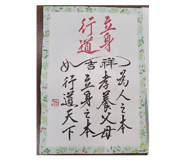 立身
行道
為人之本
祥孝養父母
吉立身之本
行道天下